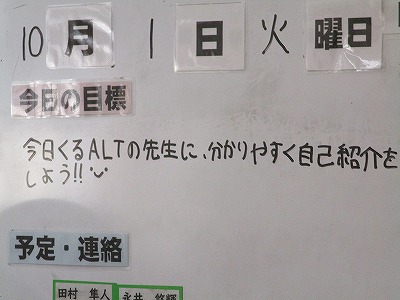 10月1日火曜日
今日の目標
今日くるALTの先生に、分かりやすく自己紹介を
しよう!!
予定・連絡
田村 隼人 永井 悠輝